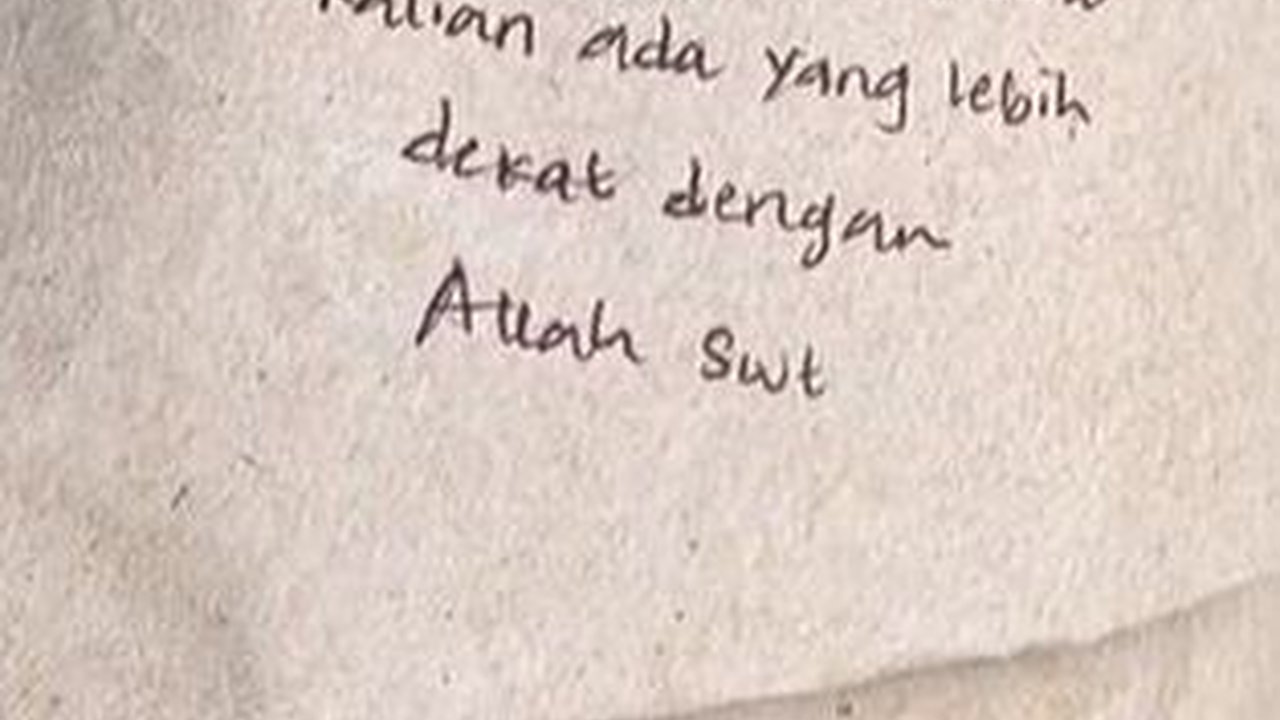 kalian ada yang lebih
dekat dengan
Allah swt